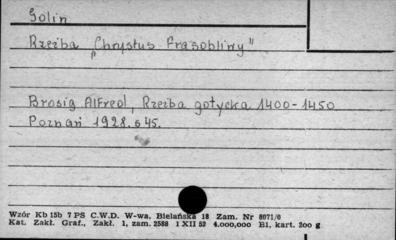 Golin
Rzeźba „Chrystus Frasobliwy"
Brosig Alfred, Rzeźba gotycka 1400-1450
Poznań 1928. s 45.
Wzór Kb 15b 7 PS C.W.D. W-wa, Bielańska 18 Zam. Nr 8071/6
Kat. Zakł. Graf., Zakł. 1, zam. 2588 1 XII 52 4.000,000 B1, kart. 200 g